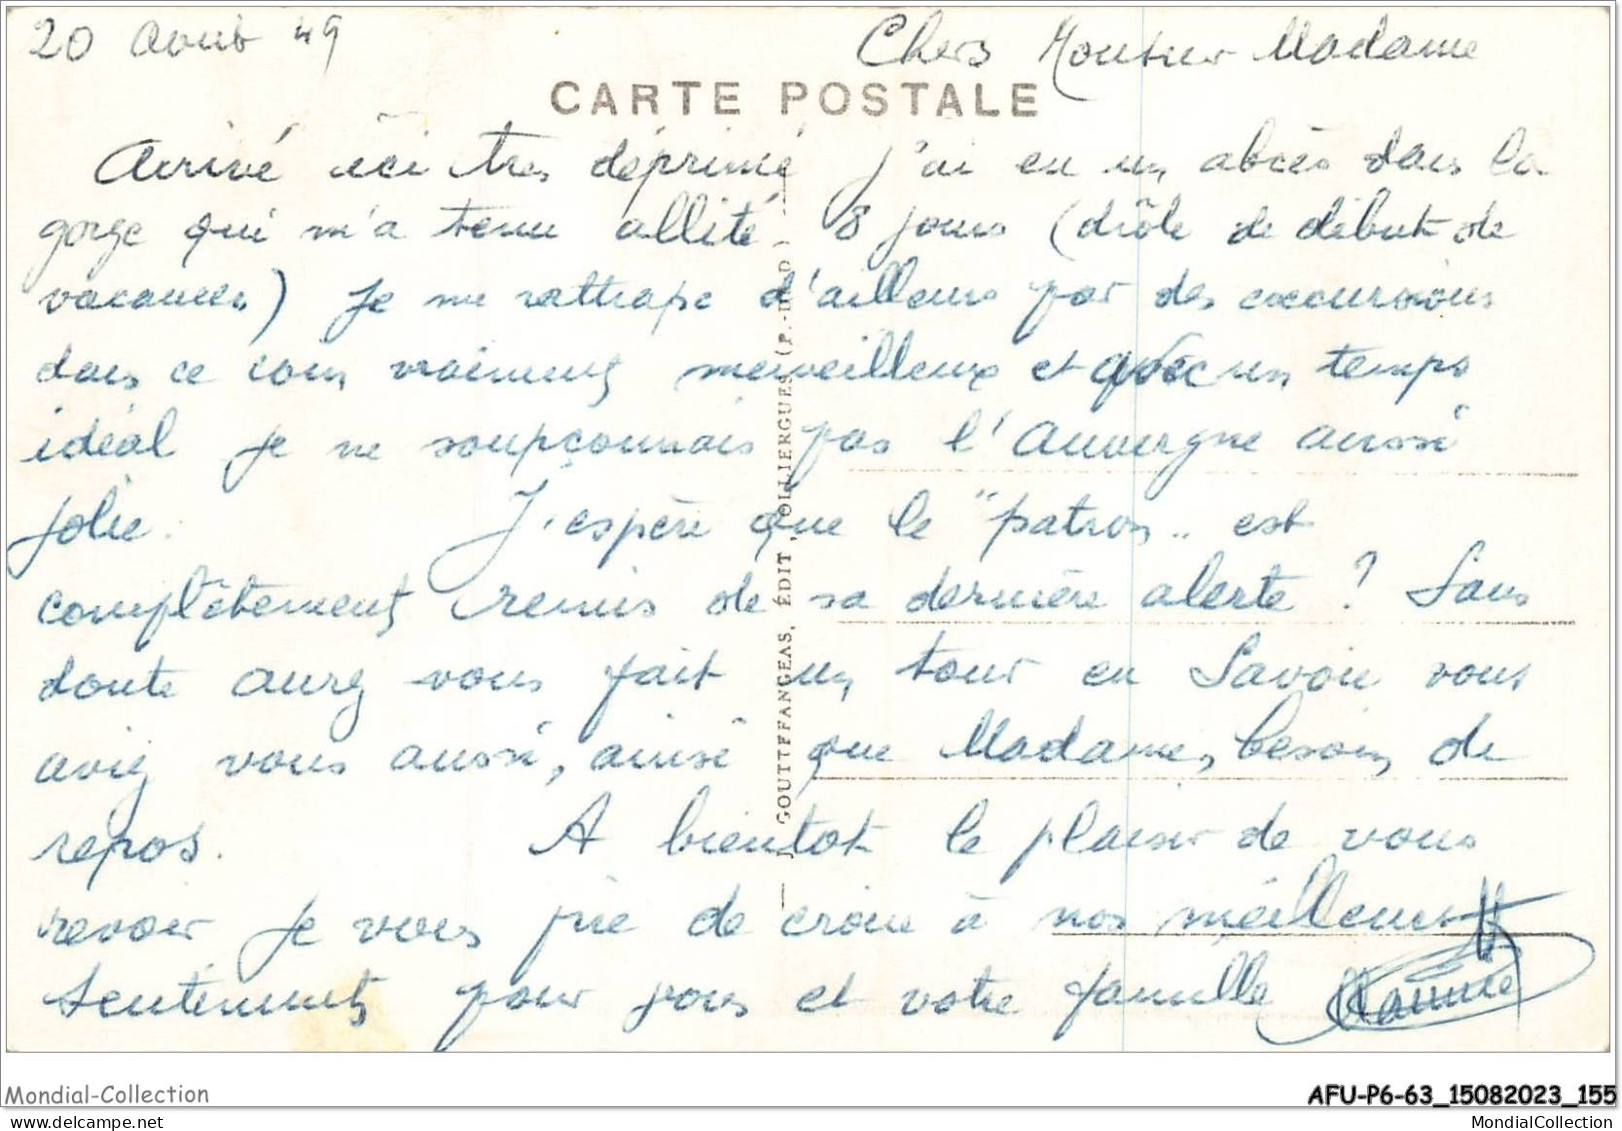 20 Août 49
Chers Monsieur Madame
CARTE POSTALE
Arrivé ici très déprimé j'ai eu un abcès dans la
gorge qui m'a tenu allité 8 jours (drôle de début de
vacances) Je me rattrape d'ailleurs par des excursions
dans ce coin vraiment merveilleux et avec un temps
idéal je ne soupçonnais pas l'Auvergne aussi
jolie. J'espère que le "patron" est
complètement remis de sa dernière alerte ? Sans
doute aurez vous fait un tour en Savoie vous
aviez vous aussi, ainsi que Madame, besoin de
repos. A bientot le plaisir de vous
revoir Je vous prie de croire à nos meilleurs
sentiments pour vous et votre famille
J. GOUTTEFANGEAS, ÉDIT., OLLIERGUES (P.-DE-D.)
Mondial-Collection
AFU-P6-63_15082023_155
MondialCollection